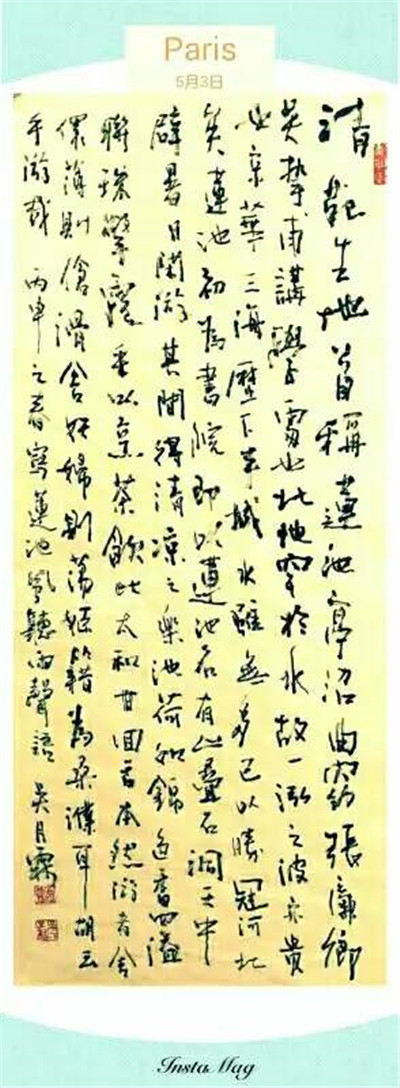 Paris
5月3日
清苑生地首稱蓮池亭沼曲窈張濂卿
吳摯甫講學處也北地罕於水故一泓之波亦貴
也京華三海歷下半城水雖無多已以勝冠河北
矣蓮池初為書院即以蓮池名有山疊石洞天中
辟暑日閑游其間得清凉之樂池荷如錦色香四溢
聯珠擎露垂以烹茶飲此太和甘回舌本然游者舍
僕薄則傖滑舍妖婦則蕩姬藉為桑濮耳胡云
乎游哉 丙申之春寫蓮池聽雨聲語 吳月霖
Insta Mag